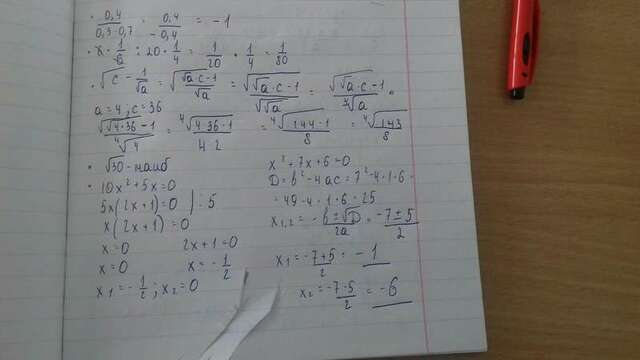 • 0,4/0,3-0,7 = 0,4/-0,4 = -1
• x · 1/a : 20 · 1/4 = 1/20 · 1/4 = 1/80
• √(c - 1/√a) = √((√a·c-1)/√a) = √(√a·c-1)/√√a = √(√a·c-1)/∜a =
a=4, c=36
√(√4·36-1)/∜4 = ∜(4·36-1)/4·2 = ∜(144-1)/8 = ∜143/8
• √30 - наиб
• 10x²+5x=0
5x(2x+1)=0 | :5
x(2x+1)=0
x=0 2x+1=0
x=0 x=-1/2
x₁=-1/2; x₂=0
x²+7x+6=0
D=b²-4ac=7²-4·1·6=
=49-4·1·6=25
x₁,₂=-b±√D/2a=-7±5/2
x₁=-7+5/2=-1
x₂=-7-5/2=-6